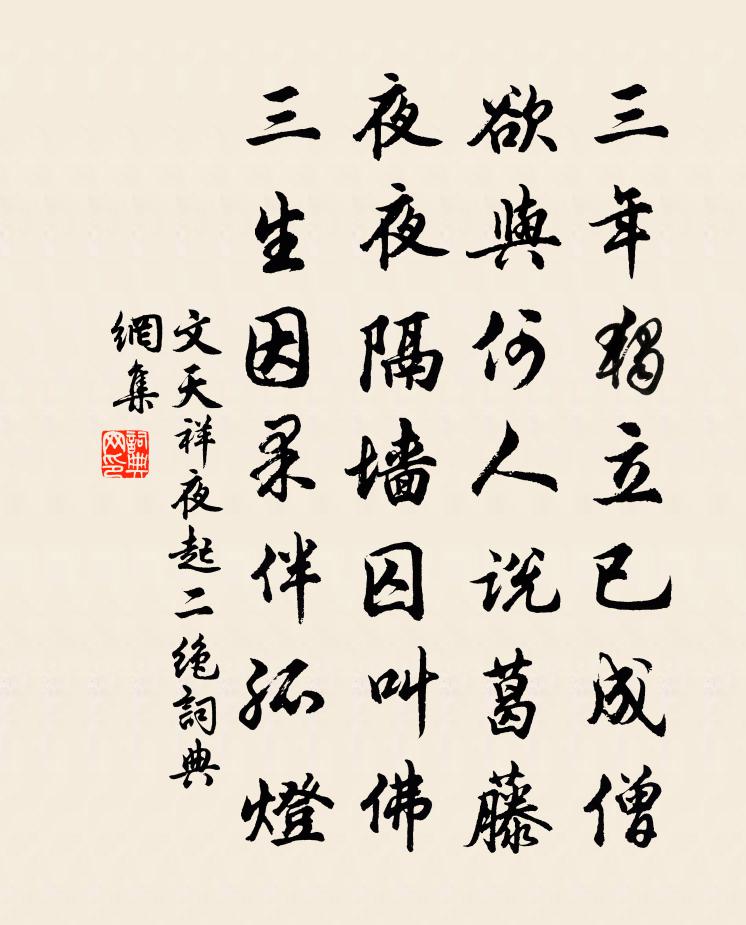 三年獨立已成僧
欲與何人說葛藤
夜夜隔墙囚叫佛
三生因果伴孤燈
文天祥夜起二絶詞典
網集
詞典
网印